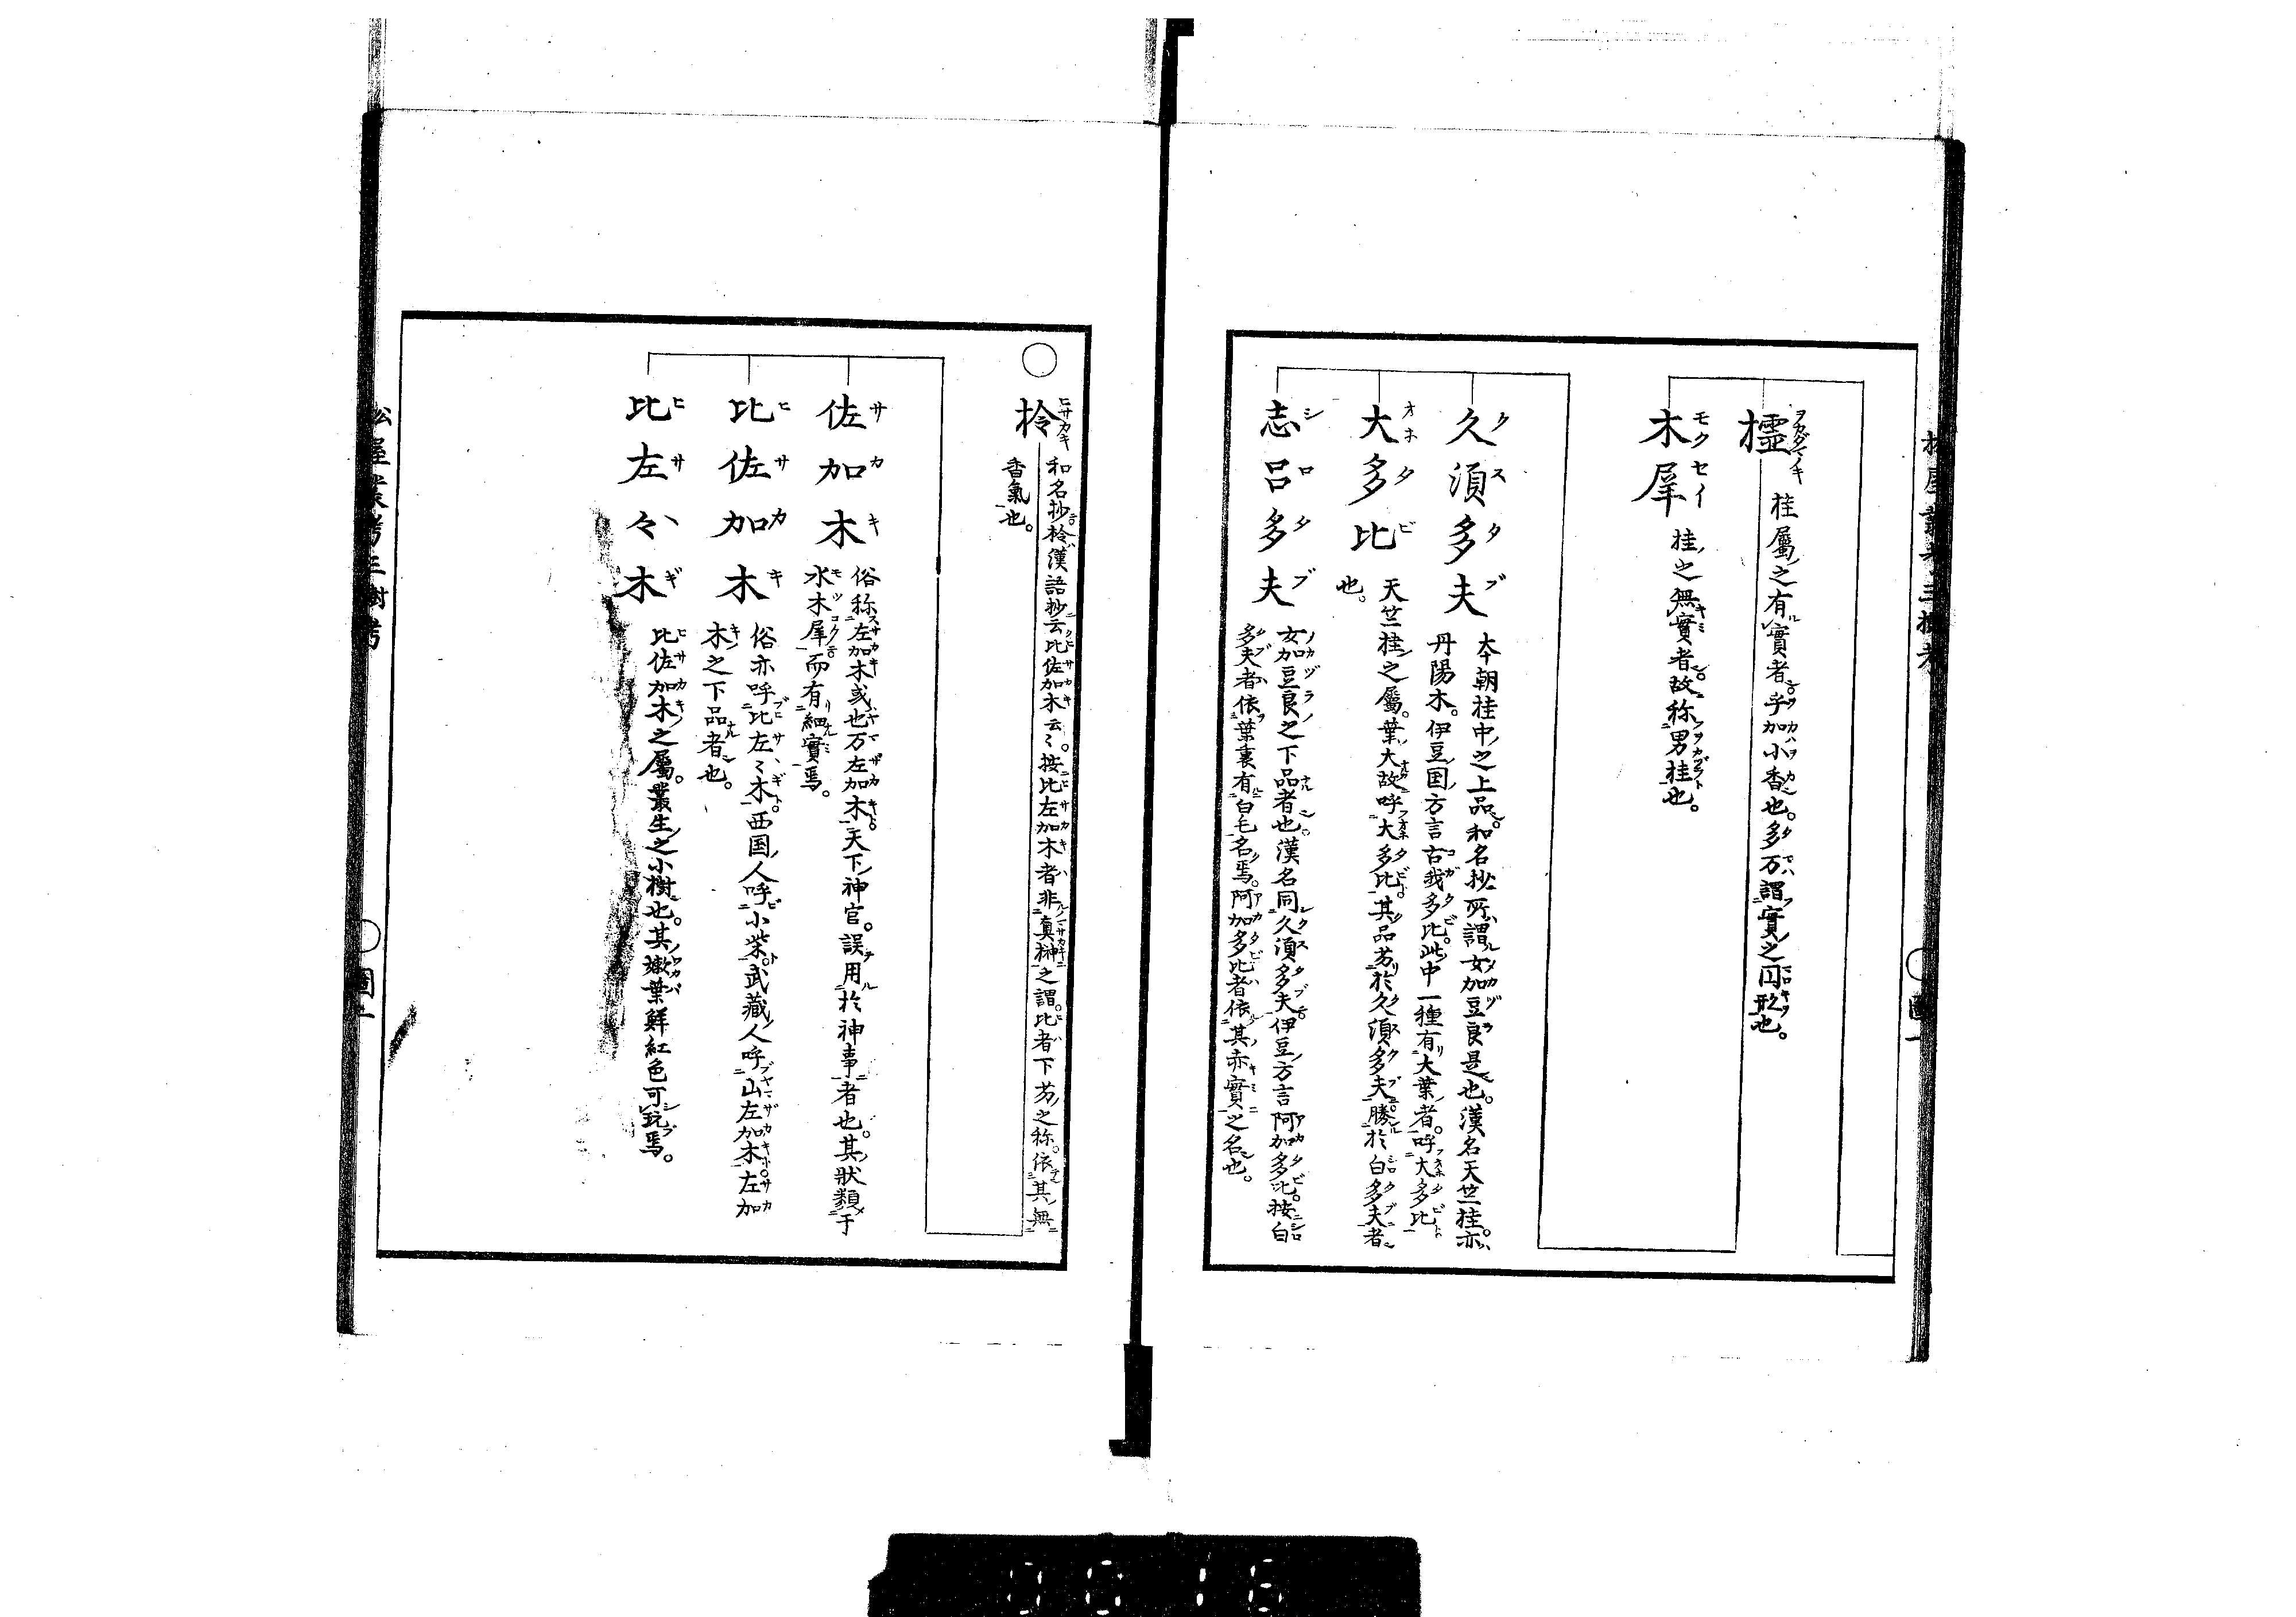 橒 桂屬之有實者。乎加小香也。多万謂實之円形也。
木犀 桂之無實者。故称男桂也。
久須多夫 本朝桂中之上品。和名抄所謂女加豆良是也。漢名天竺桂。亦
丹陽木。伊豆国方言古我多比。此中一種有大葉者。呼大多比
大多比 天竺桂之屬。葉大故呼大多比。其品劣於久須多夫。勝於白多夫者
也。
志呂多夫 女加豆良之下品者也。漢名同久須多夫。伊豆方言阿加多比。按白
多夫者依葉裏有白毛名焉。阿加多比者依其赤實之名也。
柃 和名抄柃漢語抄云比佐加木云々。按比左加木者非真榊之謂。比者下劣之称。依其無
香氣也。
佐加木 俗称左加木或也万左加木。天下神官。誤用於神事者也。其状類于
水木犀而有細實焉。
比佐加木 俗亦呼比左々木。西国人呼小柴。武蔵人呼山左加木。左加
木之下品者也。
比左々木 比佐加木之屬。叢生之小樹也。其嫩葉鮮紅色可玩焉。
松屋叢考三樹考